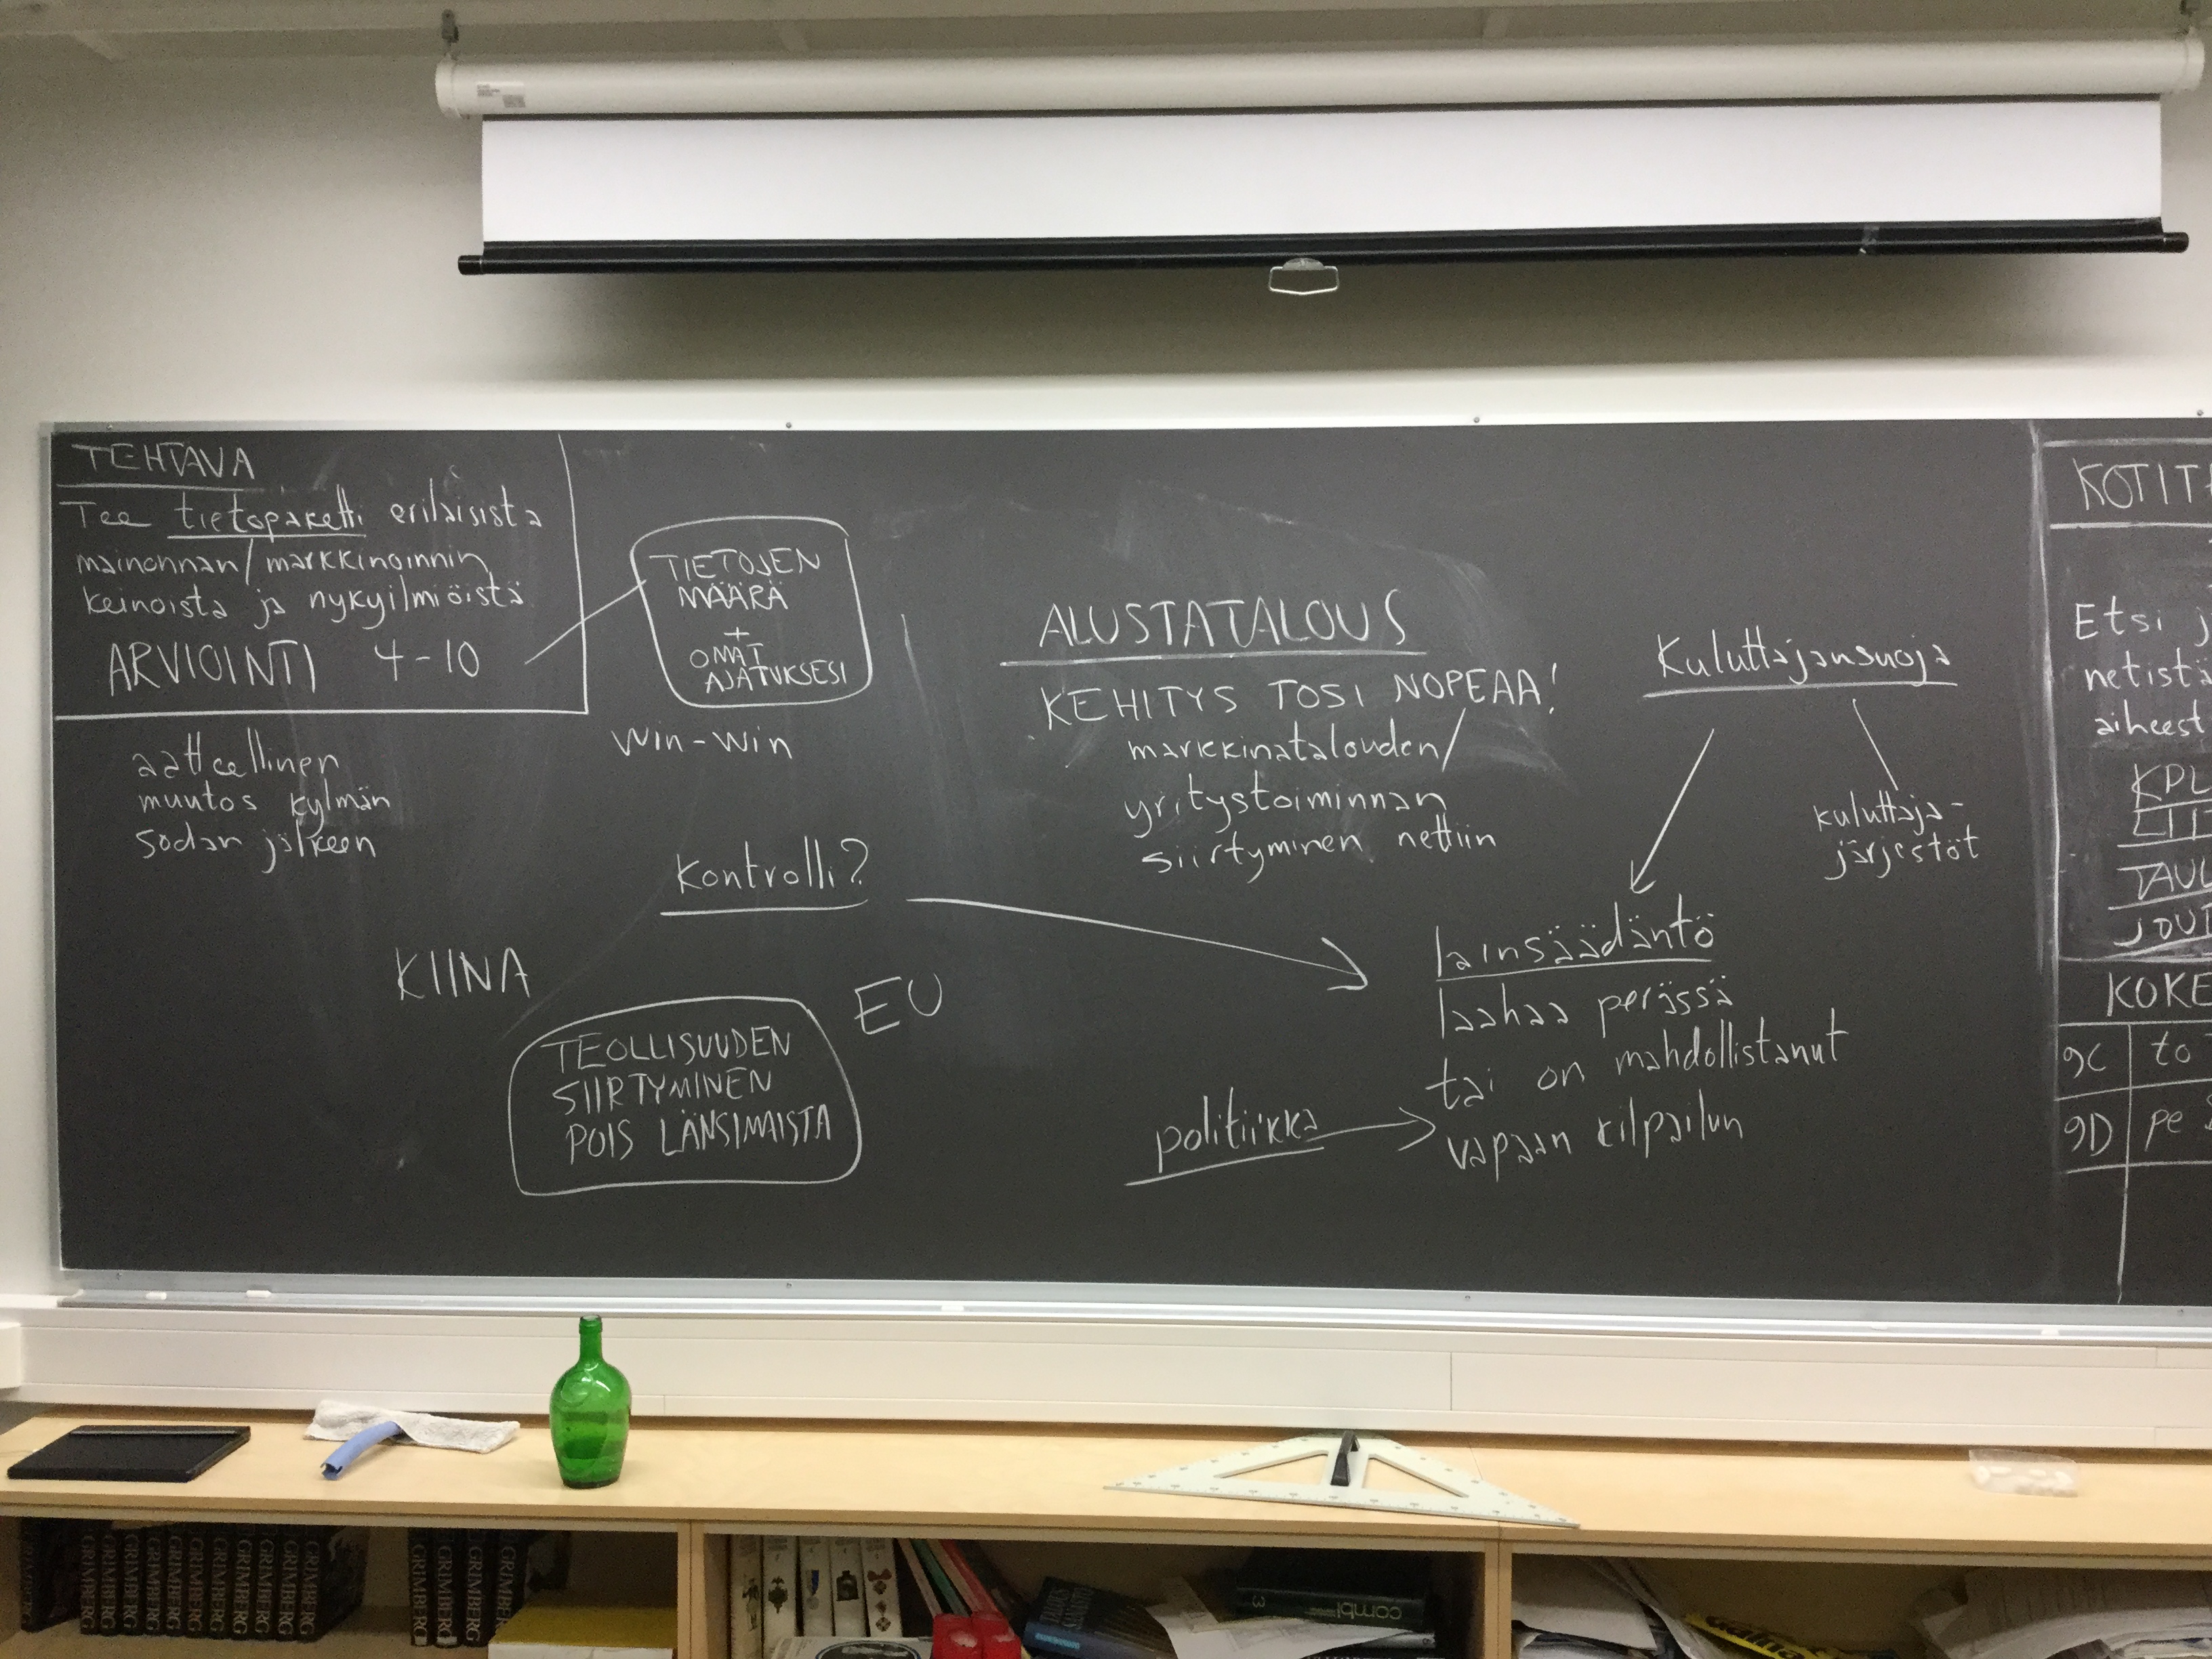 TEHTÄVÄ
Tee tietopaketti erilaisista
mainonnan/markkinoinnin
keinoista ja nykyilmiöistä
ARVIOINTI 4-10
TIETOJEN
MÄÄRÄ
+
OMAT
AJATUKSESI
aatteellinen
muutos kylmän
sodan jälkeen
win-win
Kontrolli?
KIINA
EU
TEOLLISUUDEN
SIIRTYMINEN
POIS LÄNSIMAISTA
ALUSTATALOUS
KEHITYS TOSI NOPEAA!
markkinatalouden/
yritystoiminnan
siirtyminen nettiin
Kuluttajansuoja
kuluttaja-
järjestöt
lainsäädäntö
laahaa perässä
tai on mahdollistanut
vapaan kilpailun
politiikka
KOTIT
Etsi j
netistä
aiheest
KPL
TAUL
JOUT
KOKE
9C to
9D pe
GRIMBERG
GRIMBERG
GRIMBERG
GRIMBERG
GRIMBERG
GRIMBERG
GRIMBERG
GRIMBERG
GRIMBERG
GRIMBERG
GRIMBERG
GRIMBERG
GRIMBERG
GRIMBERG
combi
3